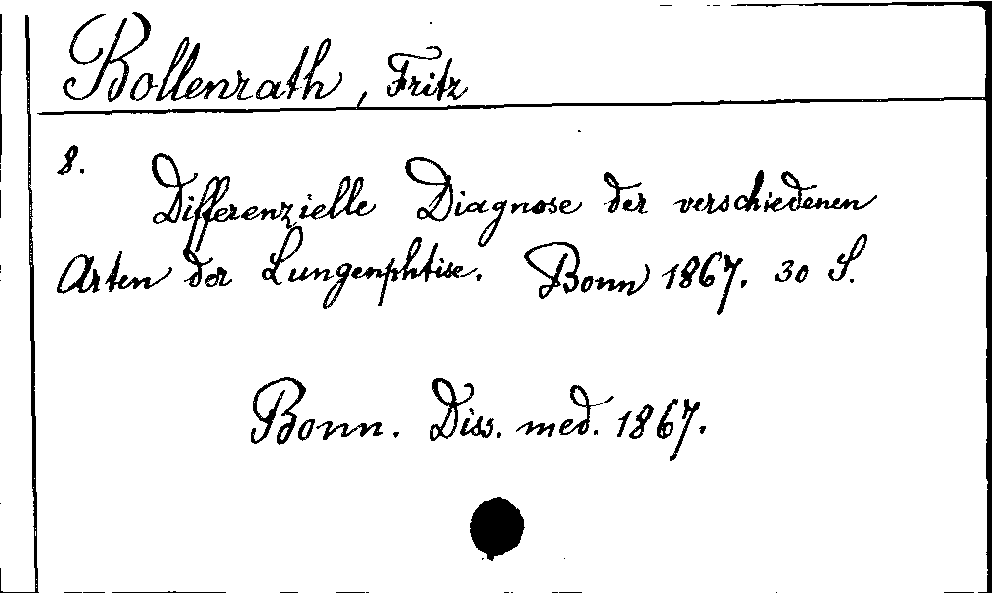 Bollenrath, Fritz
8.
Differenzielle Diagnose der verschiedenen
Arten der Lungenphtise. Bonn 1867. 30 S.
Bonn. Diss. med. 1867.